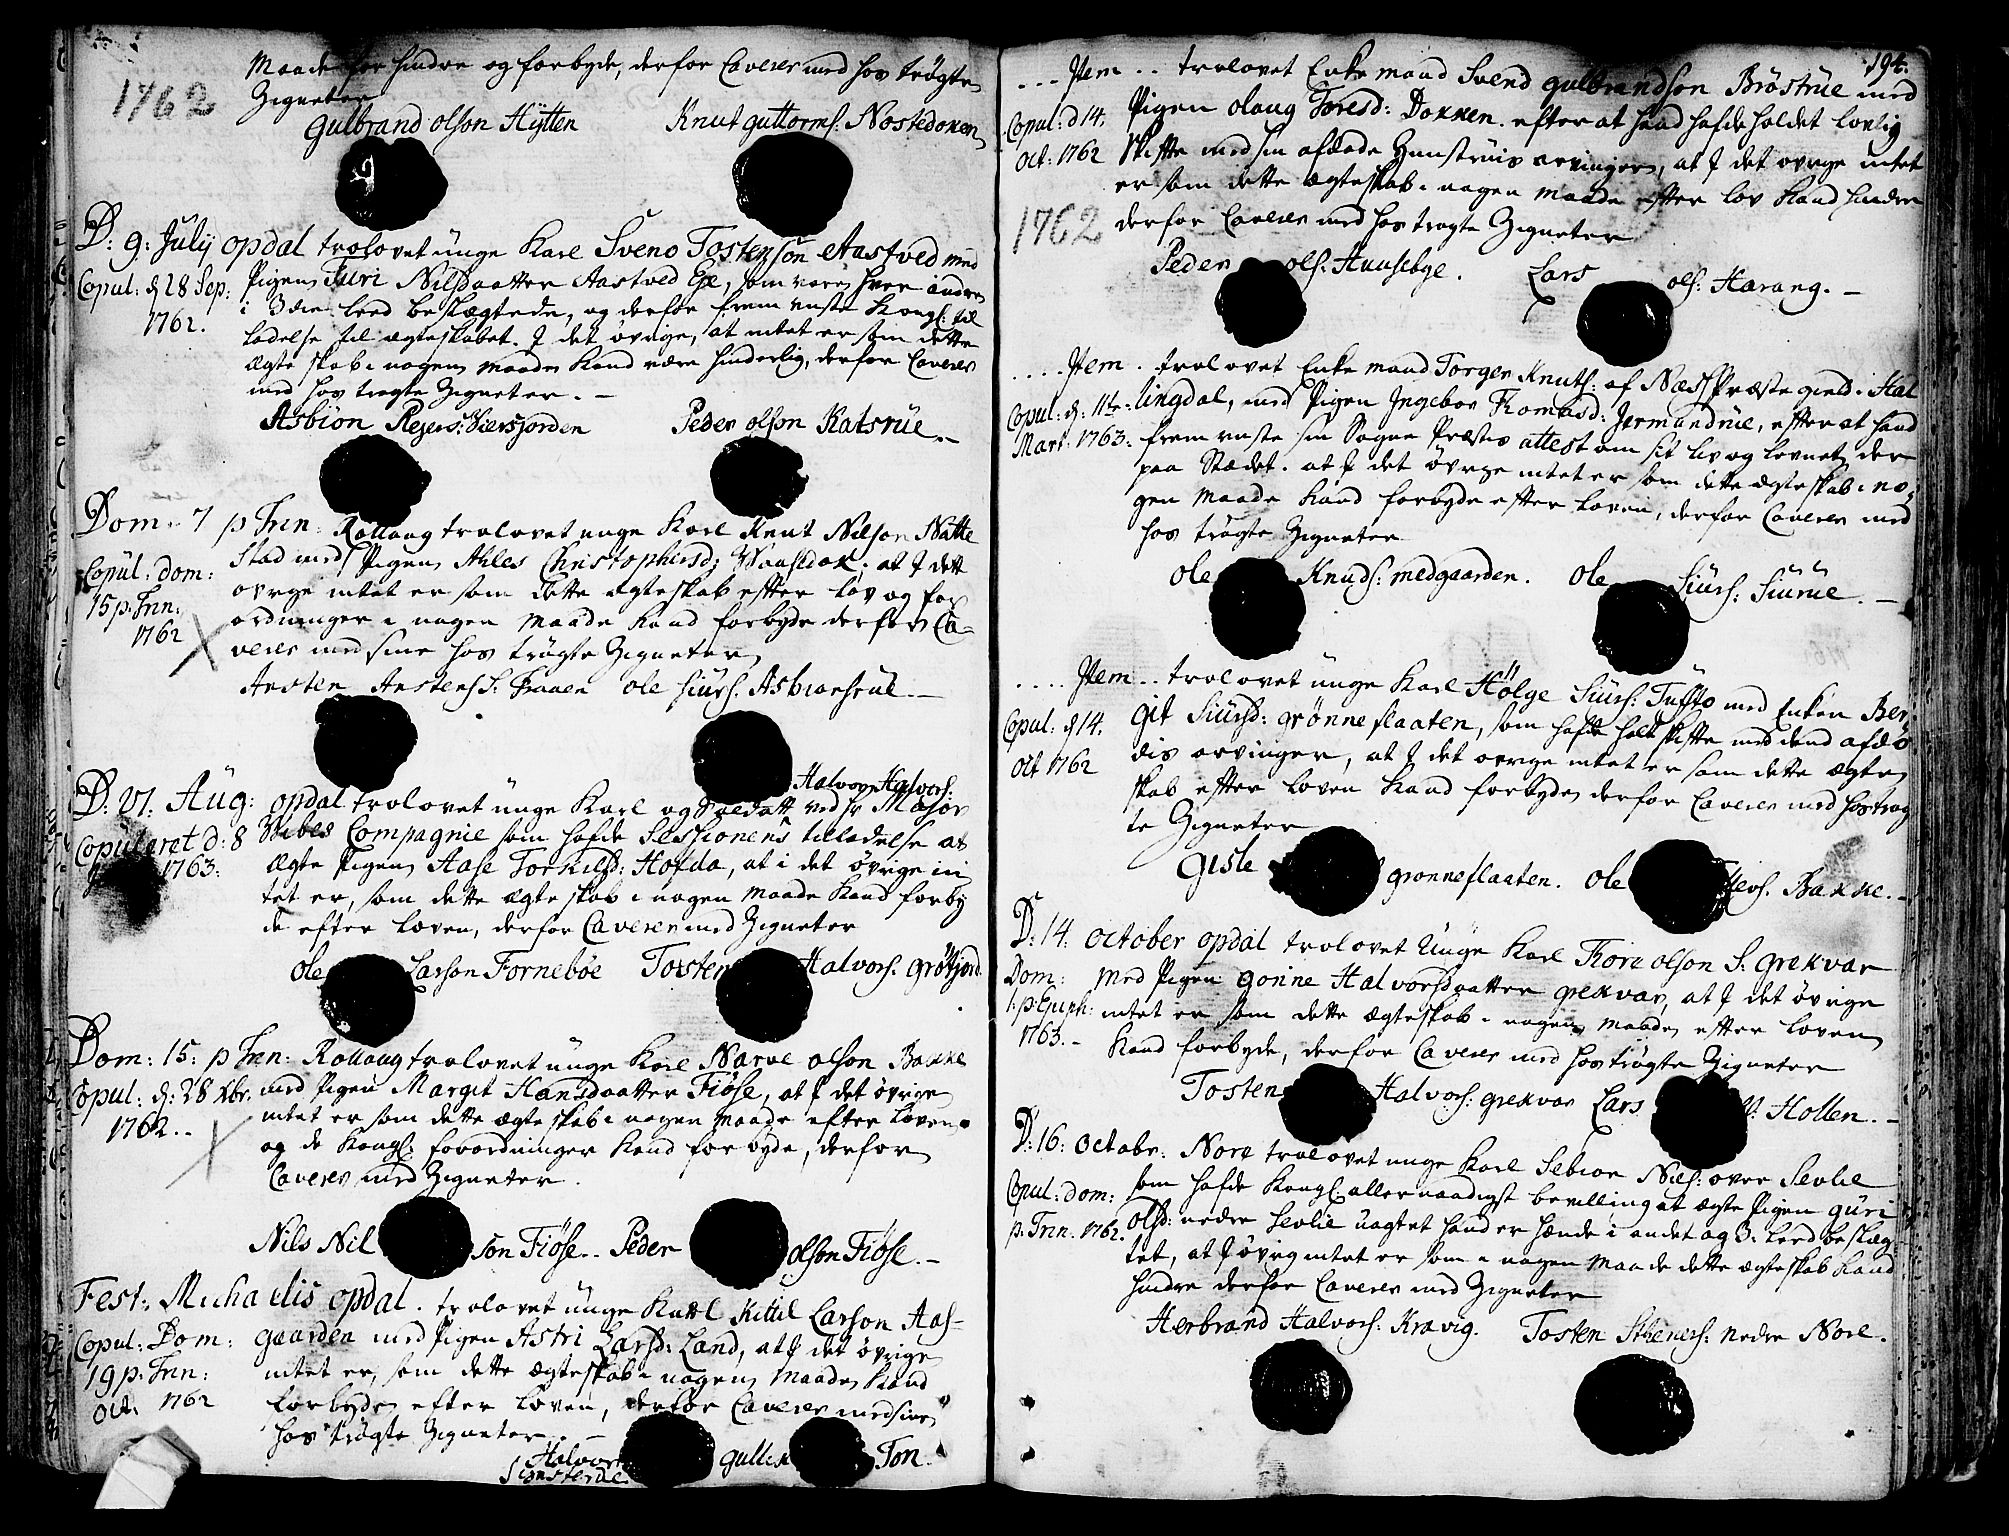 1762
Maade kan hindre og forbyde, derfor Caverer med hos trøgte
Zigneter
Gulbrand olson Hÿtten Knut guttorms: Nostedoken
D: 9: Julij opdal trolovet unge Karl Sveno Tostenson Aastved med
Copul: d 28 Sep: Pigen Turi Nilsdaatter Aastved Eje, som vare hver andre
1762. i 3die leed beslægtede, og derfor frem viste Kongl: til
ladelse til ægteskabet. J det øvrige, at intet er som dette
ægte skab i nogen maade kand være hinderlig, derfor Caveres
med hos trøgte Zigneter. –
Asbiön Rejers: Siersjorden Peder olson Ratsrüe. –
Dom: 7 p Trin: Rollaug trolovet unge Karl Knut Nilson Natte
Copul: dom: stad med Pigen Ahles Christophersd: , at J dette
15 p. Trin: øvrige intet er som dette ægteskab efter lov og for
1762 ordninger i nogen maade kand forbyde derfor Ca-
verer med sine hos trøgte Zigneter
Ansten Anstens: Fraaen ole siürs: Asbiønsrüe. –
Halvor Halvors:
D: 21. Aug: opdal trolovet unge Karl og Soldatt ved hr Major
Copuleret d: 8 Compagnie som hafde Sessionens tilladelse at
1763. ægte Pigen Aase Torkilsd: Hofda, at i det øvrige in
tet er, som dette ægte skab i nogen maade kand forby
de efter loven, derfor Caverer med Zigneter
ole Larson Fornebøe Tosten Halvors: grøtjord.
Dom: 15: p Trin: Rollaug trolovet unge Karl Narve olson Bakke
Copul: d: 28 xbr. med Pigen Margit Hansdaatter Fiøse, at J det øvrige
1762.. intet er som dette ægteskab i nogen maade efter loven
og de Kongl: forordninger kand forbyde, derfor
Caverer med Zigneter.
Nils Nil son Fiøse.. Peder olson Fiøse. –
Fest: Michaelis opdal. trolovet unge Karl Kittil Larson Aas-
Copul: Dom: gaarden med Pigen Astri Larsd: Land, at J det øvrige
19 p. Trin: intet er, som dette ægteskab i nogen maade kand
oct. 1762 forbyde efter loven, derfor Caverer med sine
hos trøgte Zigneter. –
Halvor gullik Ton.
194.
... Jtem .. trolovet Enke mand Svend gulbrandson Brøstrüe med
Copul: d 14. Pigen olaug Toresd: Dokken. efter at hand hafde holdet lovlig
oct: 1762 skifte med sin afdøde Hunstruis arvinger, at J det øvrige intet
er som dette ægteskab i nogen maade efter lov kand hindre
1762 derfor Caverer med hos trøgte Zigneter
Peder ols: Huusebye. Lars ols: Harang. –
.... Jtem . trolovet Enke mand Torger Knuts: af Næss Præste gield i Hal
Copul: d: 11te lingdal, med Pigen Ingebor Thomasd: Jermundrüe, efter at hand
Mart: 1763. frem viste sin Sogne Præstes attest om sit liv og levnet der
paa Stædet. at J det øvrige intet er som dette ægteskab i no-
gen maade kand forbyde efter loven, derfor Caverer med
hos trøgte Zigneter
ole Knuds: medgaarden. ole Siürs: Siürüe. –
.... Jtem .. trolovet unge Karl Hölge Siürs: Tuffto med Enken Ber
Copul: d 14. git Siürsd: grønneflaaten, som hafde holt skifte med dend afdø
oct 1762 dis arvinger, at J det øvrige intet er som dette ægte
skab efter loven kand forbyde, derfor Caverer med hos trøg
te Zigneter
Gisle grønneflaaten. ole Bakke. –
D: 14: october opdal trolovet Unge Karl Tore olson S: grekvar
Dom: med Pigen gonne Halvorsdaatter grekvar, at J det øvrige
1. p Epiph: intet er som dette ægteskab i nogen maade efter loven
1763. – kand forbyde, derfor Caverer med hos trøgte Zigneter
Tosten Halvors: grekvar Lars Hollen. –
D: 16: octobr: Nore trolovet unge Karl Sebior Niels: over Sevlie
Copul: dom: som hafde Kongl: allernaadigst bevilling at ægte Pigen guri
p. Trin. 1762. olsd: nedre Sevlie uagtet hand er hænde i andet og 3. leed beslæg
tet, at J øvrig intet er som i nogen maade dette ægteskab kand
hindre derfor Caverer med Zigneter
Herbrand Halvors: Kravig. Tosten Steners: nedre Nore.